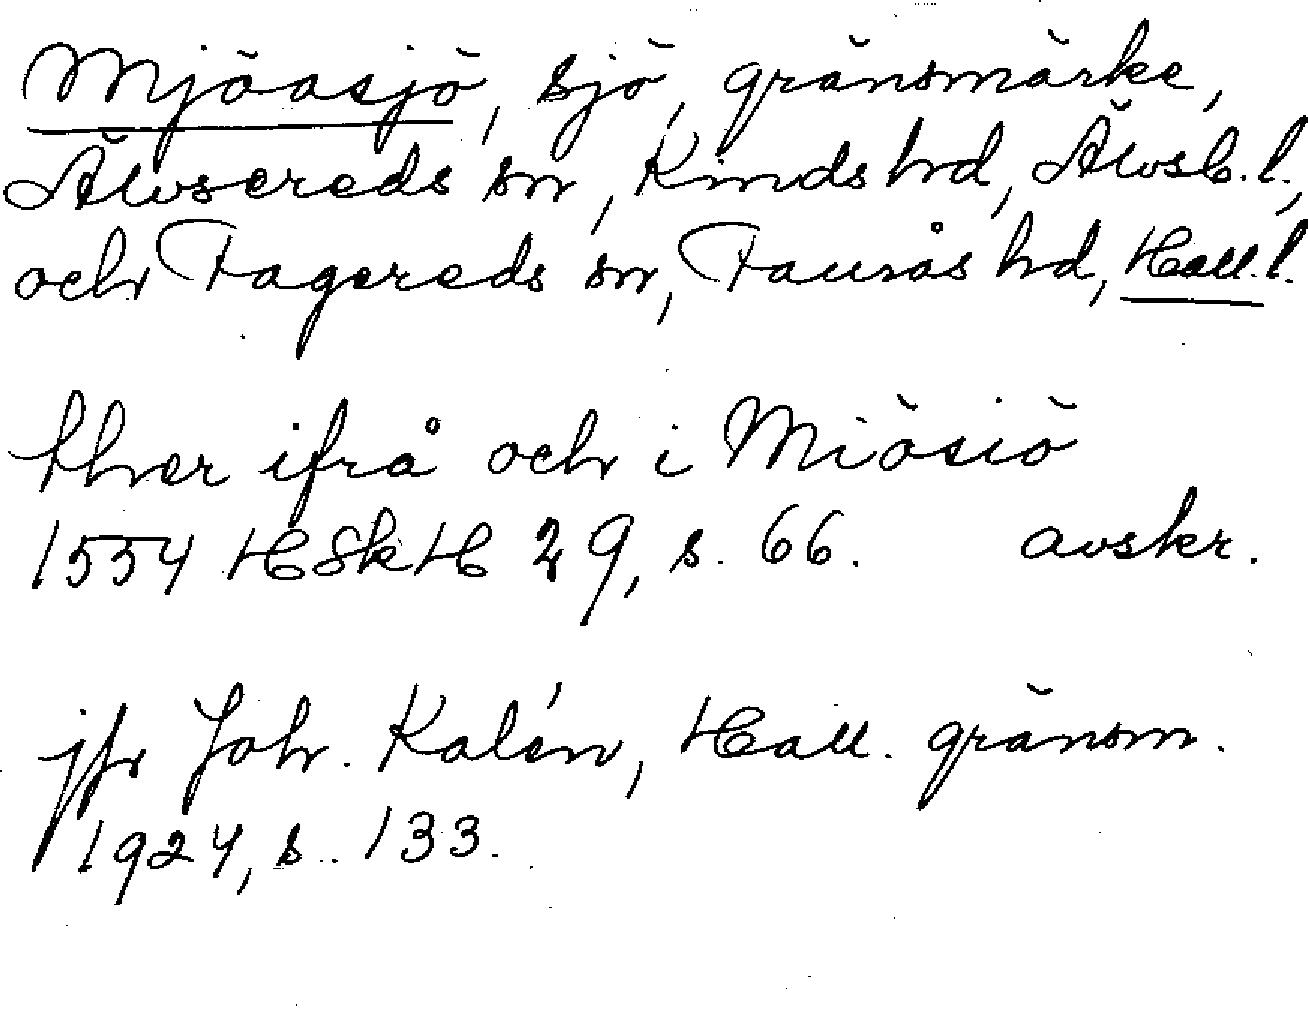 Mjöasjö, sjö, gränsmärke,
Älvsereds sn, Kinds hd, Älvsb. l.,
och Fagereds sn, Faurås hd, Hall. l.
thver ifrå och i Miösiö
1554 HSkH 29, s. 66. avskr.
jfr Joh. Kalén, Hall. gränsm.
1924, s. 133.